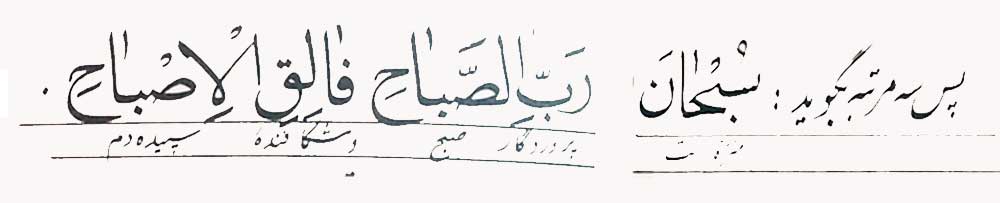 پس سه مرتبه بگوید: سُبْحٰانَ رَبِّ الصَّبٰاحِ فٰالِقِ الْاِصْبٰاحِ.
منزه است پروردگار صبح و شکافندهٔ سپیده دم